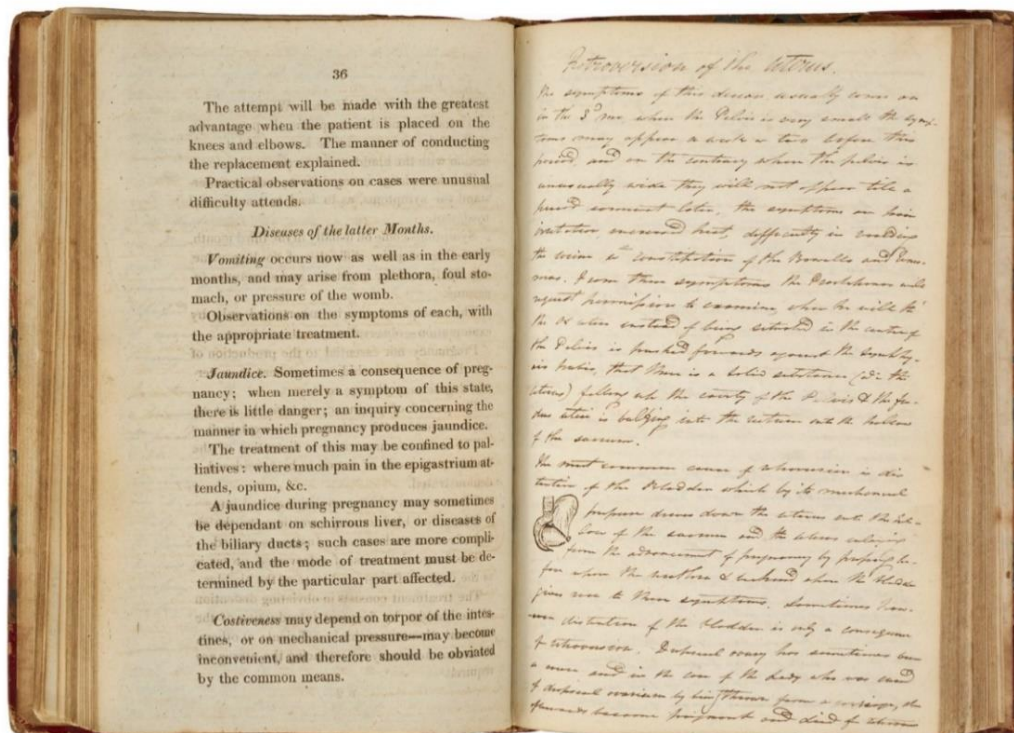 36
The attempt will be made with the greatest
advantage when the patient is placed on the
knees and elbows. The manner of conducting
the replacement explained.
Practical observations on cases were unusual
difficulty attends.
Diseases of the latter Months.
Vomiting occurs now as well as in the early
months, and may arise from plethora, foul sto-
mach, or pressure of the womb.
Observations on the symptoms of each, with
the appropriate treatment.
Jaundice. Sometimes a consequence of preg-
nancy; when merely a symptom of this state,
there is little danger; an inquiry concerning the
manner in which pregnancy produces jaundice.
The treatment of this may be confined to pal-
liatives: where much pain in the epigastrium at-
tends, opium, &c.
A jaundice during pregnancy may sometimes
be dependant on schirrous liver, or diseases of
the biliary ducts; such cases are more compli-
cated, and the mode of treatment must be de-
termined by the particular part affected.
Costiveness may depend on torpor of the intes-
tines, or on mechanical pressure—may become
inconvenient, and therefore should be obviated
by the common means.
Retroversion of the Uterus.
The symptoms of this disease usually come on
in the 3d mo. when the Pelvis is very small the symp-
toms may appear a week or two before this
period and on the contrary when the pelvis is
unusually wide they will not appear till a
period somewhat later, the symptoms are pain
irritation, increased heat, difficulty in voiding
the urine & constipation of the Bowells and
From these symptoms the Practitioner will
request permission to examine, when he will
the Os uteri instead of being situated in the centre of
the Pelvis is pushed forwards against the symphy-
sis pubis, that there is a solid substance (the
uterus) filling up the cavity of the Pelvis & the fun-
dus uteri is bulging into the rectum into the hollow
of the sacrum.
The most common cause of retroversion is dis-
tention of the Bladder which by its mechanical
pressure draws down the uterus into the hol-
low of the sacrum and the uterus enlarging
from the advancement of pregnancy by pressing be-
fore upon the urethra & behind upon the
gives rise to these symptoms. Sometimes how-
ever distention of the bladder is only a consequence
of retroversion. Diseased ovary has sometimes been
a cause and in the case of the Lady who was cured
of diseased ovarium by being thrown from a carriage, she
afterwards became pregnant and died of